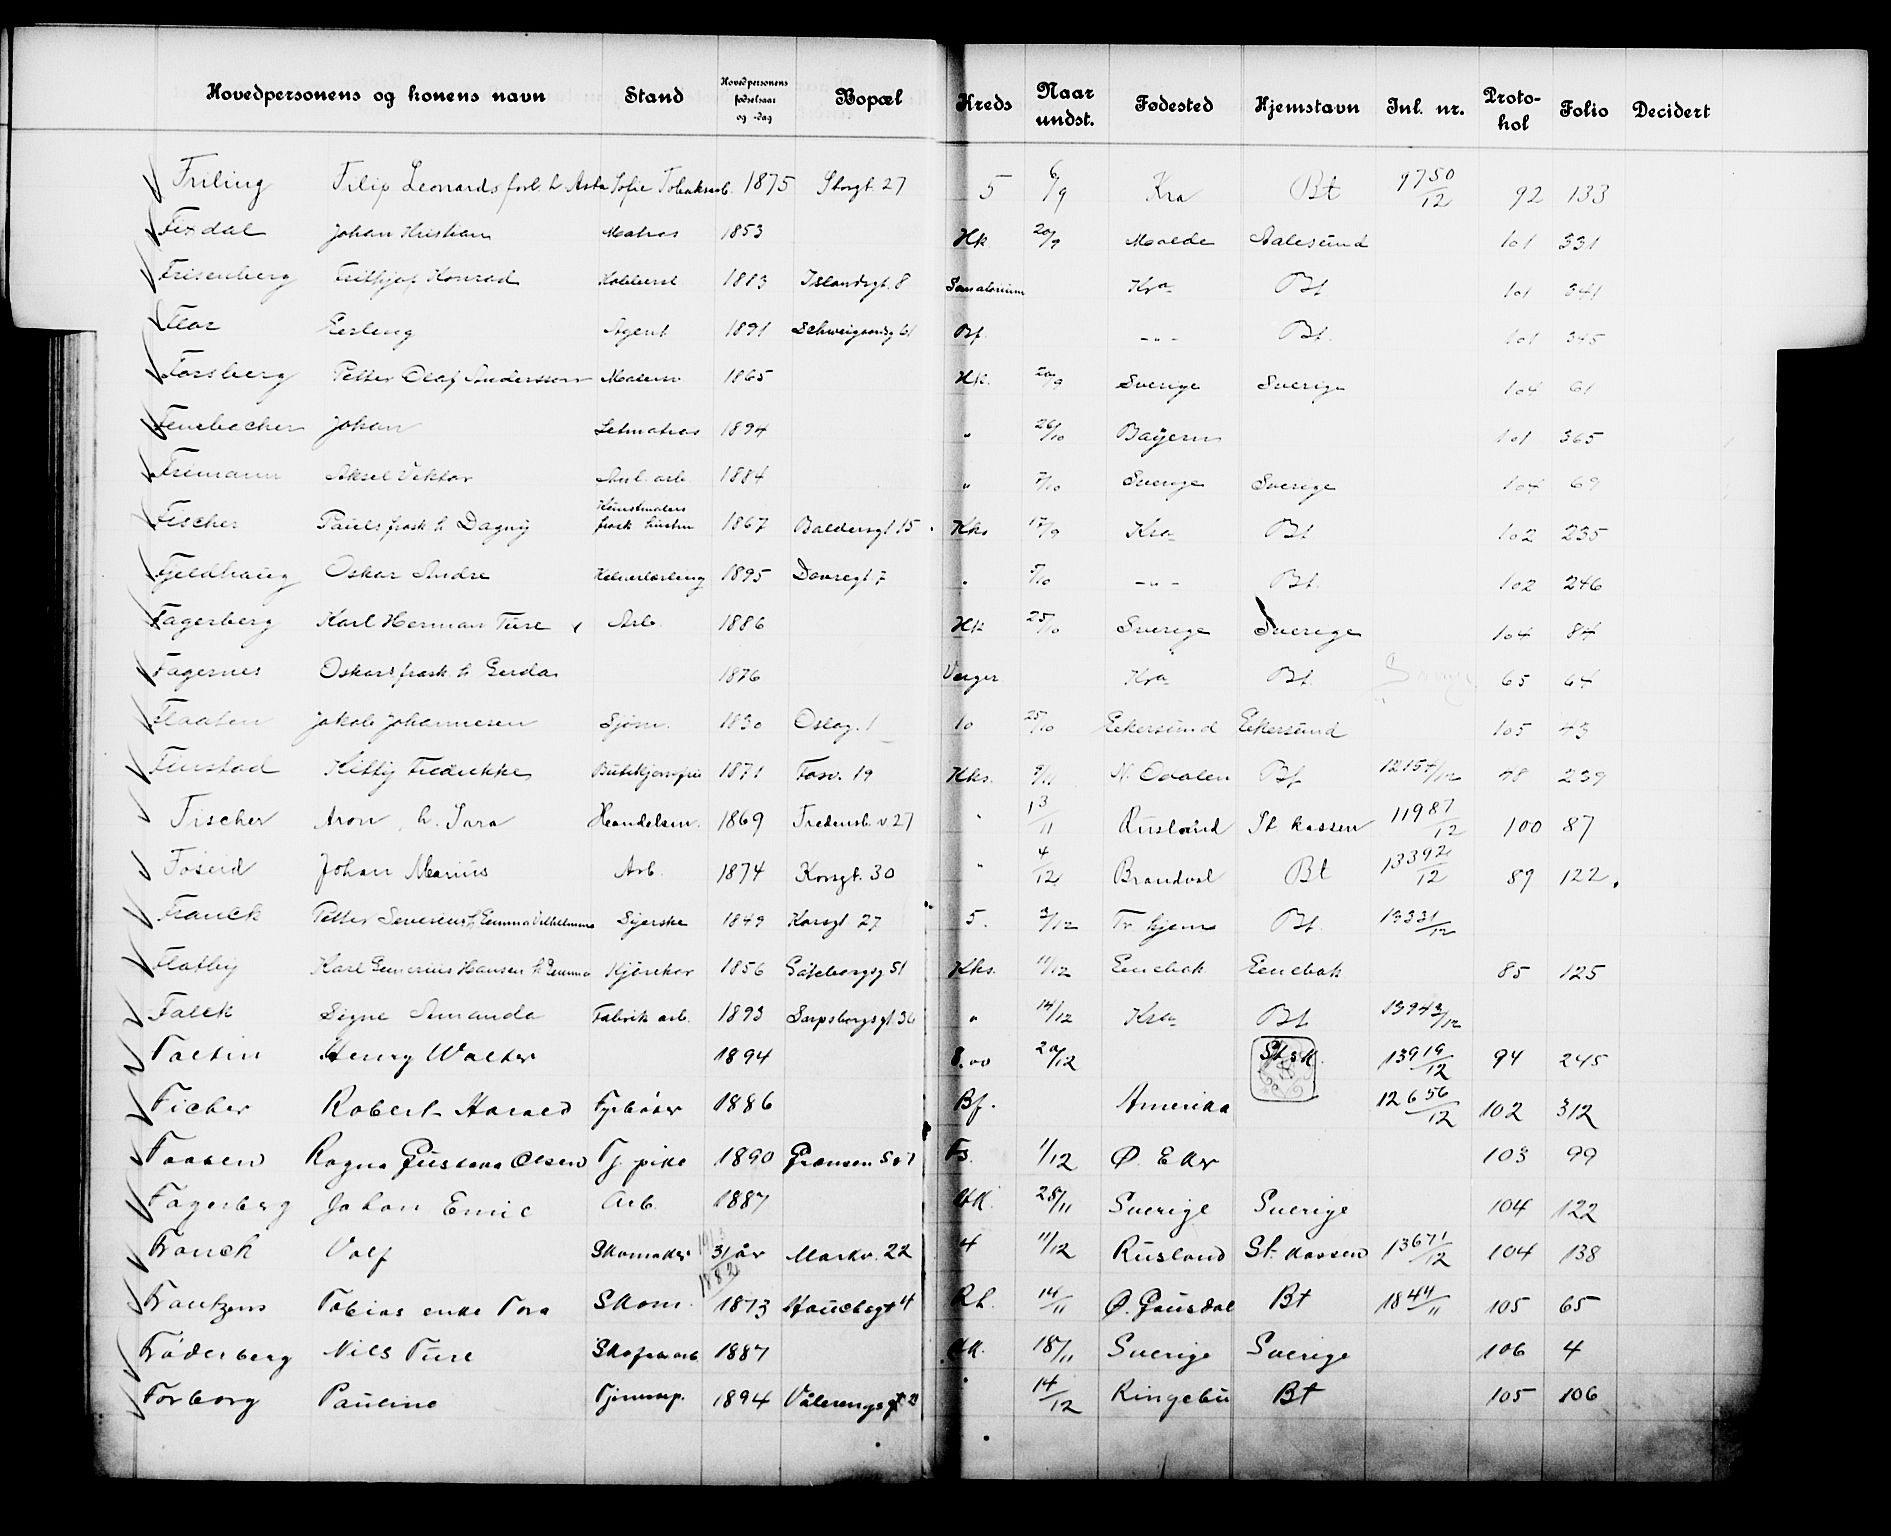 Hovedpersonens og konens navn Stand Hovedpersonens fødselsaar og -dag Bopæl Kreds Naar undst. Fødested Hjemstavn Inl. nr. Proto-kol Folio Decidert
Friling Filip Leonards forl. h. Asta Sofie Tobaksarb. 1875 Storgt. 27 5 6/9 Kra Bt 9750/12 92 133
Fixdal Johan Kristian Matros 1853 Hk 20/9 Molde Aalesund 101 331
Frisenberg Frithjof Konrad 1883 Islandsgt. 8 Sanatorium Kra Bt 101 341
Flor Erling Agent 1891 Schweigaardsg 61 Bf. -"- Bt. 101 345
Forsberg Petter Olaf Andersson Maler 1865 Hk. 20/9 Sverige Sverige 104 61
Johan Letmatros 1894 " 26/10 Bayern 101 365
Frimann Aksel Viktor Anl. arb. 1884 " 7/10 Sverige Sverige 104 69
Fischer Pauls frask. h. Dagny Kunstmalers frask. hustru 1867 Baldersgt 15 Kks 17/9 Kra Bt 102 235
Fjeldhaug Oskar Andre 1895 Dovregt 7 " -"- Bt. 102 246
Fagerberg Karl Herman Ture Arb. 1886 Hk 25/10 Sverige Sverige 104 84
Fagernes Oskars frask. h. Gerda 1876 Verger Kra Bt. 65 64
Flaaten Jakob Johannesen Sjøm. 1830 Oslog. 1 10 25/10 Ekersund Ekersund 105 43
Finstad Kitty Fredrikke 1871 Fosv. 19 Kks. N. Odalen Bt 12154/12 48 239
Fischer Aron, h. Sara Handelsm. 1869 Fredensb. v 27 " 13/11 Rusland St kassen 11987/12 100 87
Foseid Johan Marius Arb. 1874 Korsgt. 30 " 4/12 Brandval Bt 13392/12 89 122.
Franck Petter Severins h Emma Vilhelmine Syerske 1849 Korsgt 27 5. 3/12 Tr. hjem Bt. 13331/12
Flatby Karl Gunerius Hansen h Emma Kjørekar 1856 Göteborgsg 51 Kks. 11/12 Enebak Enebak 85 125
Falck Signe Amanda Fabrik arb. 1893 Sarpsborgsgt 36 " 14/12 Kra Bt 13943/12
Henry Walter 1894 8.00 20/12 St. K. 13919/12 94 245
Ficher Robert Harald Fyrbøter 1886 Bf. Amerika 12656/12 102 312
Faasen Ragna Gustava Olsen Tj. pike 1890 Grænsen 5 Fs. 11/12 Ø. Eker 103 99
Fagerberg Johan Emil Arb. 1887 Hk. 28/11 Sverige Sverige 104 122
Franck Volf Skomaker 31 år 1882 Markv. 22 4 11/12 Rusland St. kassen 13671/12 104 138
Frantzens Tobias enke Tora Skom. 1873 Hauchsgt 4 Rh. 14/11 Ø. Gausdal Bt 1844/11 105 65
Fröderberg Nils Ture Skofabarb. 1887 Hk. 18/11 Sverige Sverige 106 4
Forborg Pauline 1894 Vålerengsgt " 14/12 Ringebu Bt 105 106